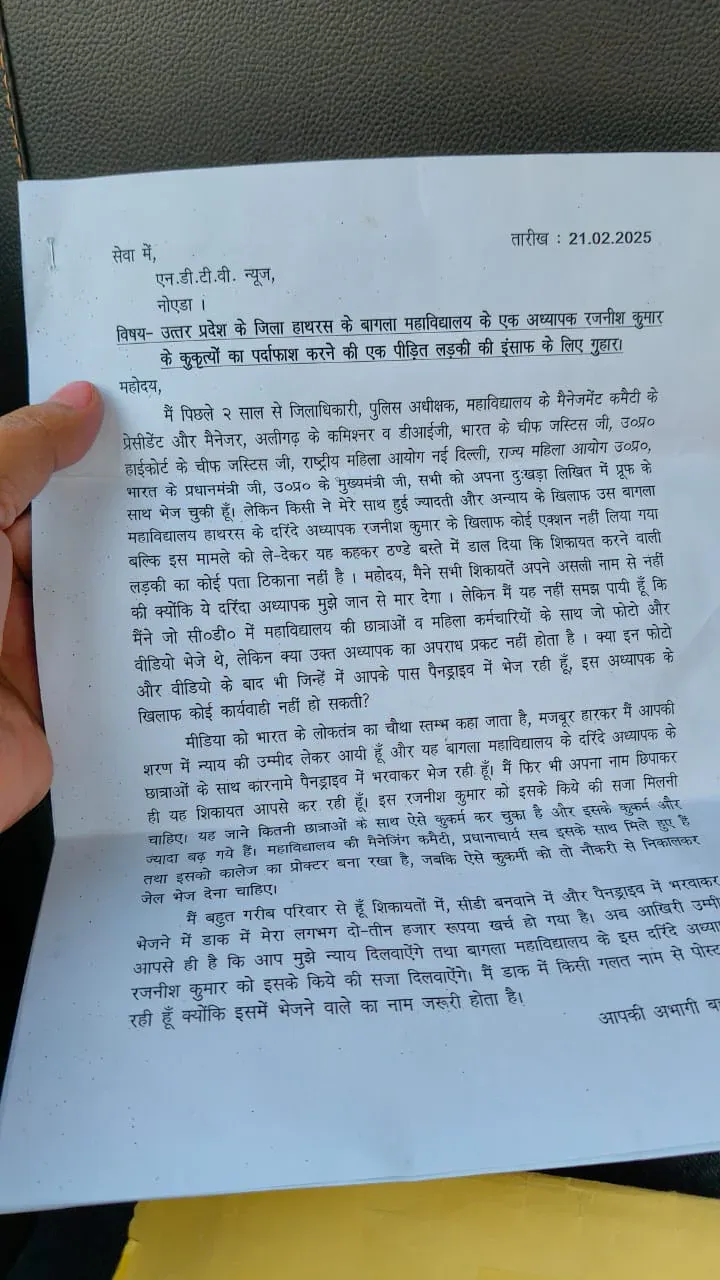 तारीख : 21.02.2025
सेवा में,
एन.डी.टी.वी. न्यूज,
नोएडा ।
विषय- उत्तर प्रदेश के जिला हाथरस के बागला महाविद्यालय के एक अध्यापक रजनीश कुमार
के कुकृत्यों का पर्दाफाश करने की एक पीड़ित लड़की की इंसाफ के लिए गुहार।
महोदय,
मैं पिछले २ साल से जिलाधिकारी, पुलिस अधीक्षक, महाविद्यालय के मैनेजमेंट कमैटी के
प्रेसीडेंट और मैनेजर, अलीगढ़ के कमिश्नर व डीआईजी, भारत के चीफ जस्टिस जी, उ०प्र०
हाईकोर्ट के चीफ जस्टिस जी, राष्ट्रीय महिला आयोग नई दिल्ली, राज्य महिला आयोग उ०प्र०,
भारत के प्रधानमंत्री जी, उ०प्र० के मुख्यमंत्री जी, सभी को अपना दुःखड़ा लिखित में प्रूफ के
साथ भेज चुकी हूँ। लेकिन किसी ने मेरे साथ हुई ज्यादती और अन्याय के खिलाफ उस बागला
महाविद्यालय हाथरस के दरिंदे अध्यापक रजनीश कुमार के खिलाफ कोई एक्शन नहीं लिया गया
बल्कि इस मामले को ले-देकर यह कहकर ठण्डे बस्ते में डाल दिया कि शिकायत करने वाली
लड़की का कोई पता ठिकाना नहीं है । महोदय, मैने सभी शिकायतें अपने असली नाम से नहीं
की क्योंकि ये दरिंदा अध्यापक मुझे जान से मार देगा । लेकिन मैं यह नहीं समझ पायी हूँ कि
मैंने जो सी०डी० में महाविद्यालय की छात्राओं व महिला कर्मचारियों के साथ जो फोटो और
वीडियो भेजे थे, लेकिन क्या उक्त अध्यापक का अपराध प्रकट नहीं होता है । क्या इन फोटो
और वीडियो के बाद भी जिन्हें में आपके पास पैनड्राइव में भेज रही हूँ, इस अध्यापक के
खिलाफ कोई कार्यवाही नहीं हो सकती?
मीडिया को भारत के लोकतंत्र का चौथा स्तम्भ कहा जाता है, मजबूर हारकर मैं आपकी
शरण में न्याय की उम्मीद लेकर आयी हूँ और यह बागला महाविद्यालय के दरिंदे अध्यापक के
छात्राओं के साथ कारनामे पैनड्राइव में भरवाकर भेज रही हूँ। मैं फिर भी अपना नाम छिपाकर
ही यह शिकायत आपसे कर रही हूँ। इस रजनीश कुमार को इसके किये की सजा मिलनी
चाहिए। यह जाने कितनी छात्राओं के साथ ऐसे कुकर्म कर चुका है और इसके कुकर्म और
ज्यादा बढ़ गये हैं। महाविद्यालय की मैनेजिंग कमैटी, प्रधानाचार्य सब इसके साथ मिले हुए हैं
तथा इसको कालेज का प्रोक्टर बना रखा है, जबकि ऐसे कुकर्मी को तो नौकरी से निकालकर
जेल भेज देना चाहिए।
मैं बहुत गरीब परिवार से हूँ शिकायतों में, सीडी बनवाने में और पैनड्राइव में भरवाकर
भेजने में डाक में मेरा लगभग दो-तीन हजार रूपया खर्च हो गया है। अब आखिरी उम्मी
आपसे ही है कि आप मुझे न्याय दिलवाऐंगे तथा बागला महाविद्यालय के इस दरिंदे अध्या
रजनीश कुमार को इसके किये की सजा दिलवाऐंगे। मैं डाक में किसी गलत नाम से पोस्ट
रही हूँ क्योंकि इसमें भेजने वाले का नाम जरूरी होता है।
आपकी अभागी